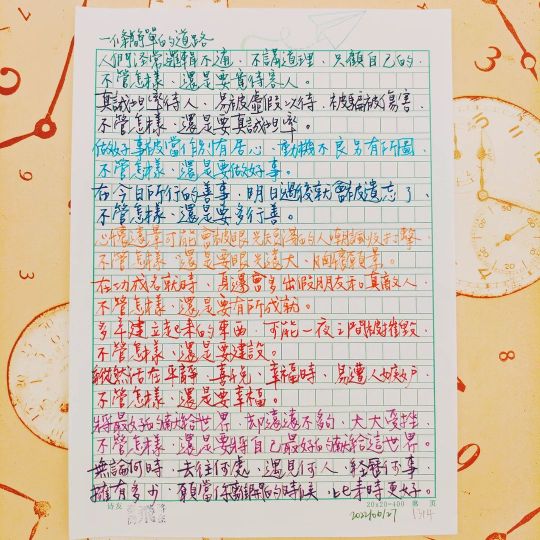 一條簡單的道路
人們經常邏輯不通、不講道理、只顧自己的.
不管怎樣、還是要寬待客人。
真誠坦率待人、易被虛假以待、被騙被傷害
不管怎樣、還是要真誠坦率。
做好事被當作別有居心、動機不良另有所圖
不管怎樣、還是要做好事。
在今日所行的善事、明日過後就會被遺忘了、
不管怎樣、還是要多行善。
心懷遠景可能會被眼光短淺的人嘲諷被打擊
不管怎樣、還是要眼光遠大、胸懷願景。
在功成名就時、身邊會多出假朋友和真敵人、
不管怎樣、還是要有所成就。
多年建立起來的東西、可能一夜之間被摧毀、
不管怎樣、還是要建設。
縱然活在平靜、喜悅、幸福時、易遭人嫉妒
不管怎樣、還是要幸福。
將最好的獻給世界、却遠遠不夠、大大受挫、
不管怎樣、還是要將自己最好的獻給這世界。
無論何時、去往何處、遇見何人、經歷何事、
擁有多少、願當你離開的時候、比來時更好。
诗友
20x20=400 第 页
2022/06/27
1314